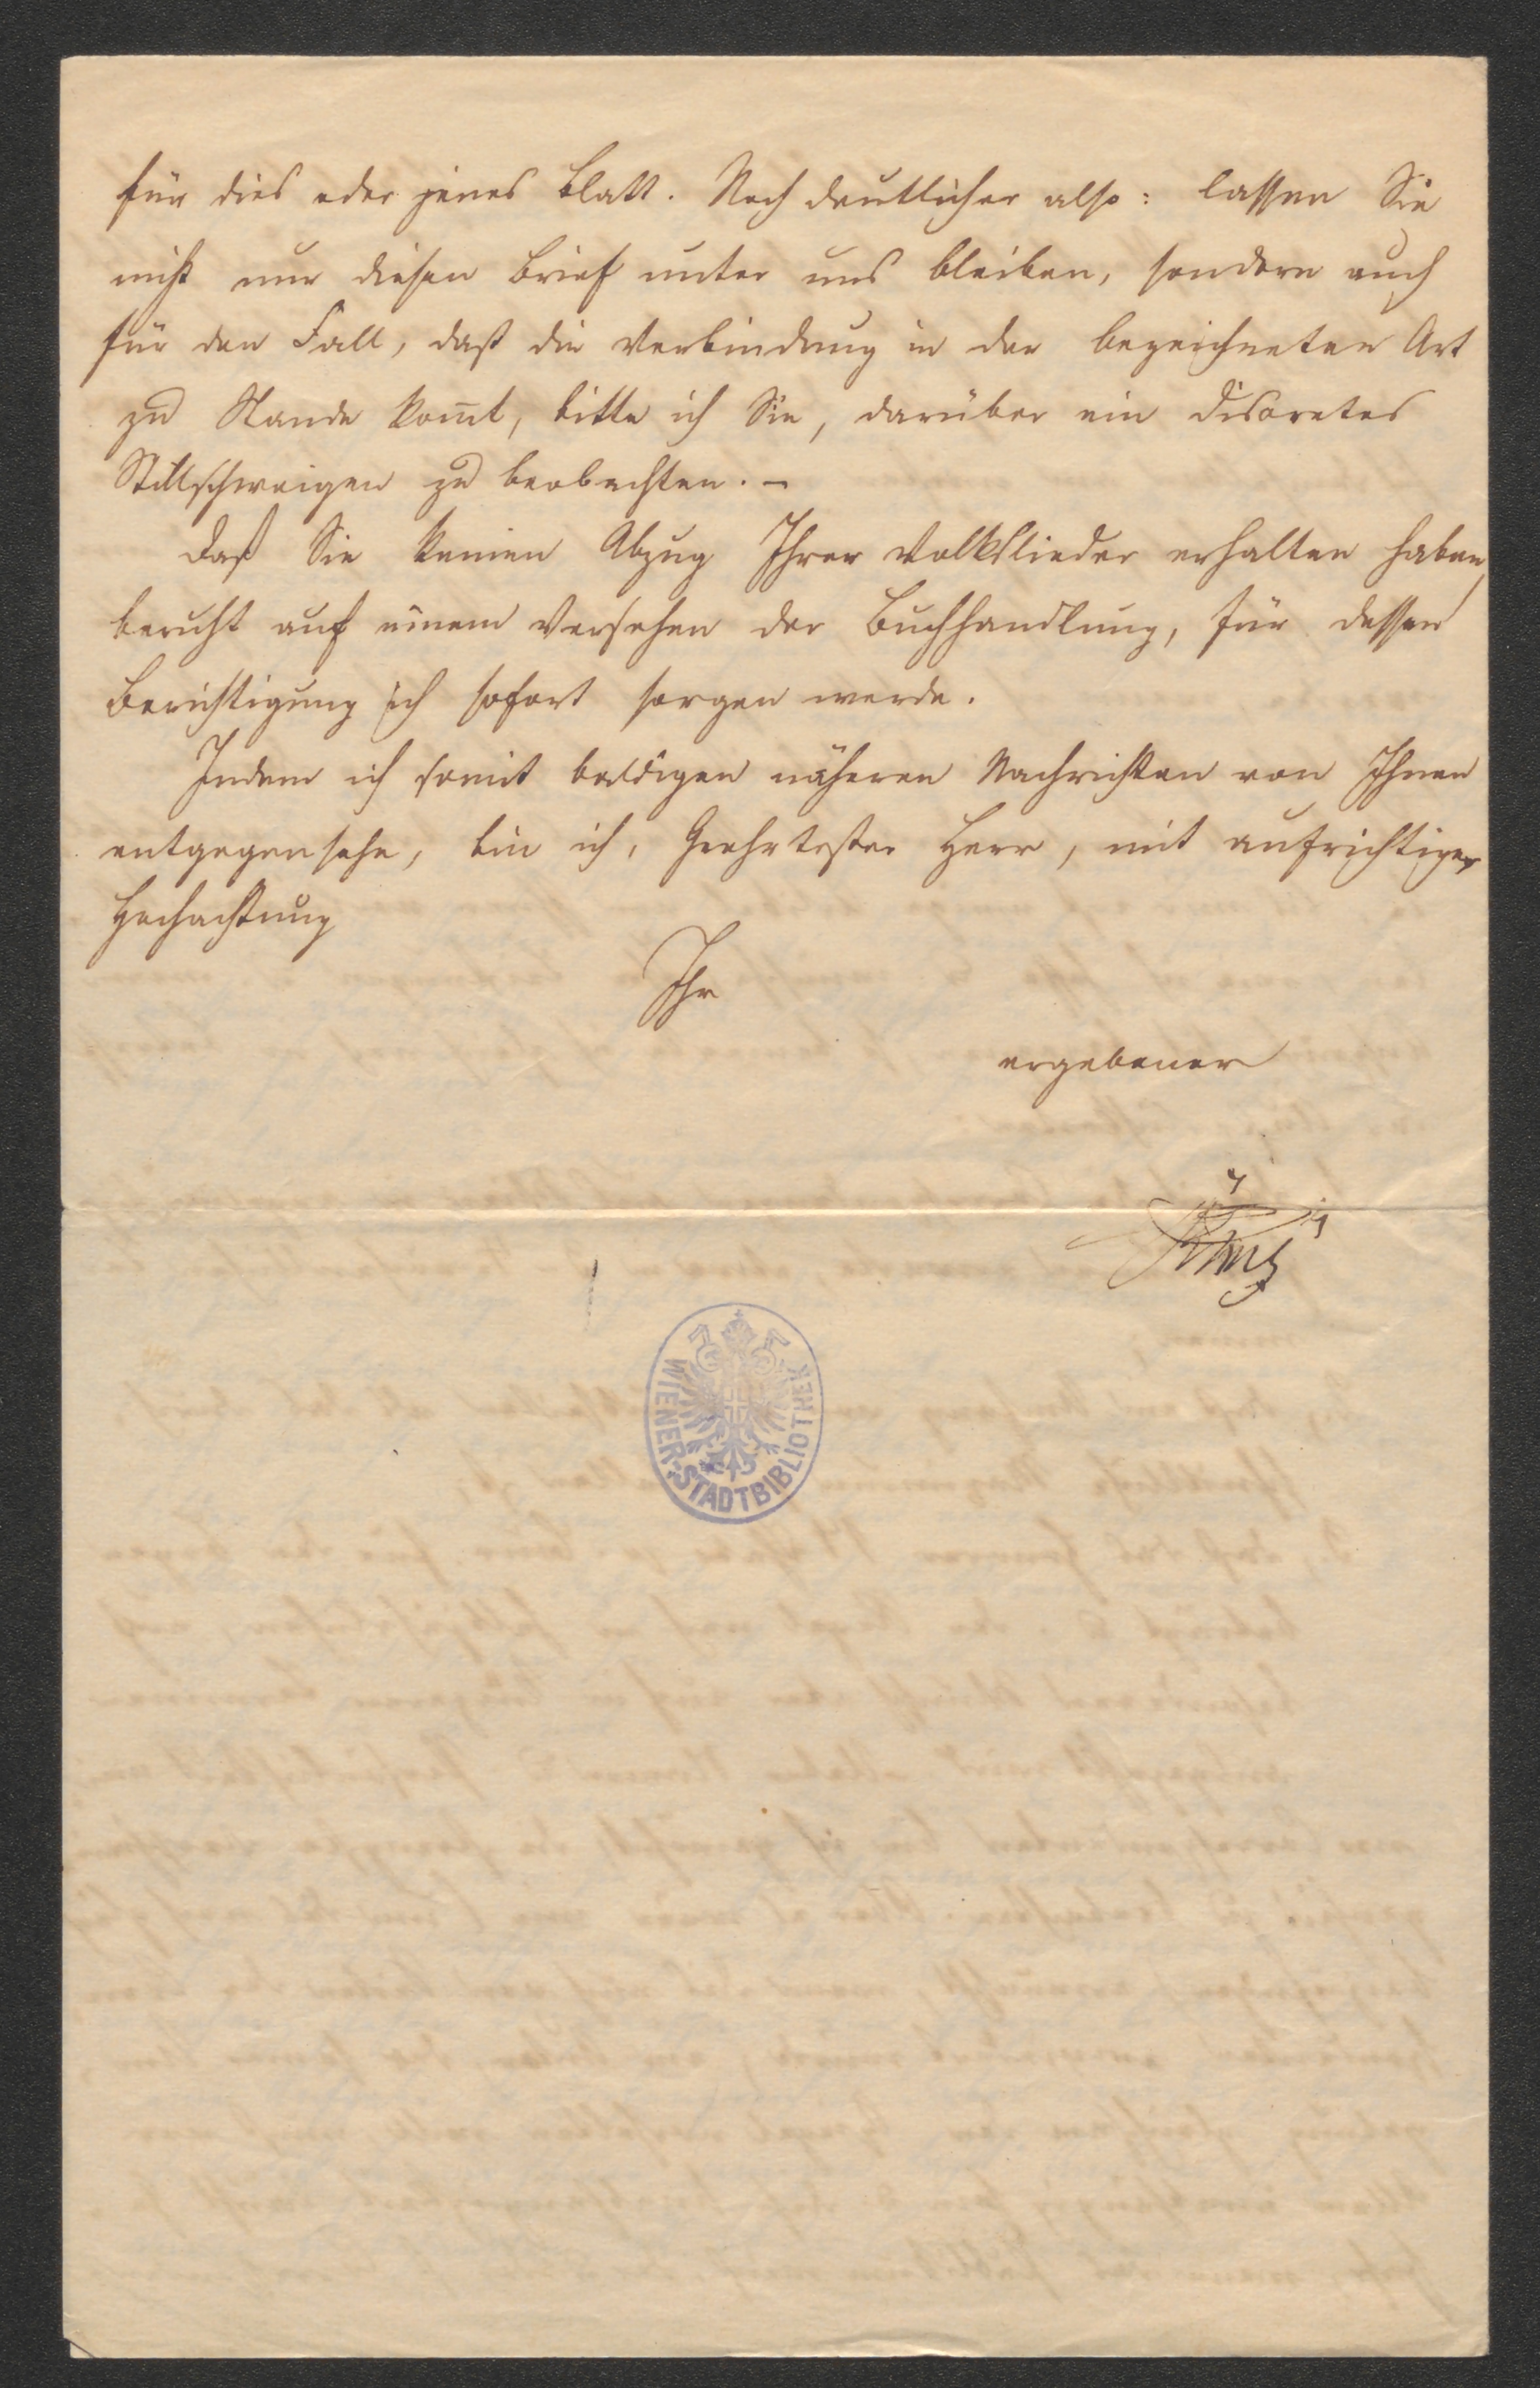 für dies oder jenes Blatt. Noch deutlicher also: lassen Sie
nicht nur diesen Brief unter uns bleiben, sondern auch
für den Fall, daß die Verbindung in der bezeichneten Art
zu Stande kom̄t, bitte ich Sie, darüber ein discretes
Stillschweigen zu beobachten. –
Daß Sie keinen Abzug Ihrer Volkslieder erhalten haben,
beruht auf einem Versehen der Buchhandlung, für dessen
Berichtigung ich sofort sorgen werde.
Indem ich somit baldigen näheren Nachrichten von Ihnen
entgegensehe, bin ich, Geehrtester Herr, mit aufrichtiger
Hochachtung
Ihr
ergebener
WIENER-STADTBIBLIOTHEK